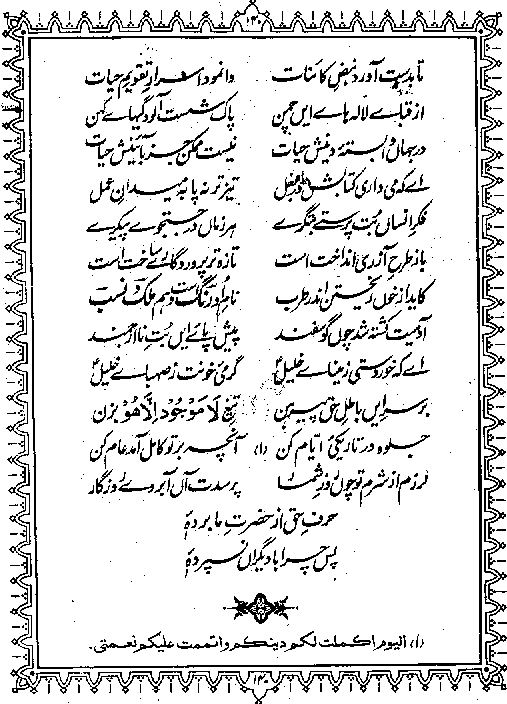 ۱۴۰
تا بدست آورد نبض کائنات وانمود اسرارِ تقویمِ حیات
از قباے لالہ ہاے ایں چمن پاک شست آلودگیہاے کہن
در جہاں وابستۂ دینش حیات نیست ممکن جز بآئینش حیات
اے کہ می داری کتابش در بغل تیز تر نہ پا بہ میدانِ عمل
فکرِ انساں بت پرستے بتگرے ہر زماں در جستجوے پیکرے
باز طرحِ آزری انداخت است تازہ تر پروردگارے ساخت است
کاید از خوں ریختن اندر طرب نامِ او رنگ است و ہم ملک و نسب
آدمیت کشتہ شد چوں گوسفند پیشِ پائے ایں بتِ نا ارجمند
اے کہ خوردستی ز میناے خلیلؑ گرمیِ خونت ز صہباے خلیلؑ
بر سرِ ایں باطلِ حق پیرہن تیغِ لَا مَوْجُوْدَ اِلَّا ھُوْ بزن
جلوہ در تاریکیِ ایام کن (۱) آنچہ بر تو کامل آمد عام کن
لرزم از شرمِ تو چوں روزِ شمار پرسدت آں آبروے روزگار
حرفِ حق از حضرتِ ما بردۂ
پس چرا با دیگراں نسپردۂ
(۱) الیوم اکملت لکم دینکم و اتممت علیکم نعمتی۔
۱۴۰